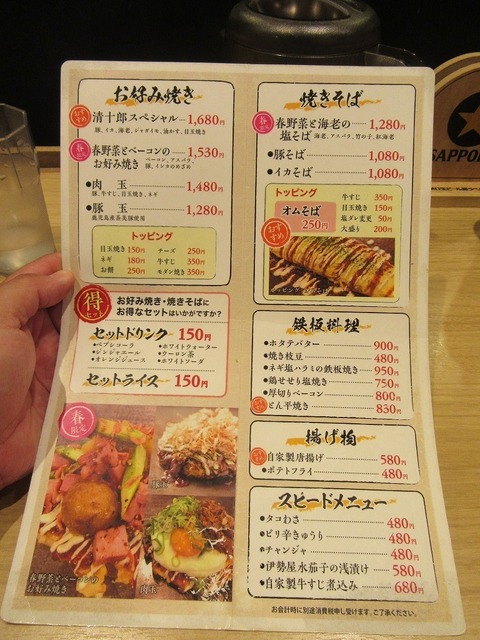 お好み焼き
おすすめ
清十郎スペシャル 1,680円
豚、イカ、海老、ジャガイモ、油かす、目玉焼き
春限定
春野菜とベーコンの
お好み焼き 1,530円
ベーコン、アスパラ、
●肉 玉 1,480円
豚、牛すじ、目玉焼き、ネギ
●豚 玉 1,280円
鹿児島産茶美豚使用
トッピング
目玉焼き 150円
ネギ 180円
お餅 250円
チーズ 250円
牛すじ 350円
モダン焼き 350円
得
セット
お好み焼き・焼きそばに
お得なセットはいかがですか?
セットドリンク 150円
●ペプシコーラ
●ジンジャエール
●オレンジジュース
●ホワイトウォーター
●ウーロン茶
●ホワイトソーダ
セットライス 150円
春
限定
豚玉
肉玉
春野菜とベーコンの
お好み焼き
焼きそば
春限定
春野菜と海老の
塩そば 1,280円
海老、アスパラ、竹の子、紅海老
●豚そば 1,080円
●イカそば 1,080円
トッピング
オムそば
250円
おすすめ
牛すじ 350円
目玉焼き 150円
塩ダレ変更 50円
大盛り 200円
鉄板料理
●ホタテバター 900円
●焼き枝豆 480円
●ネギ塩ハラミの鉄板焼き 950円
●鶏せせり塩焼き 750円
●厚切りベーコン 800円
とん平焼き 830円
揚げ物
自家製唐揚げ 580円
●ポテトフライ 480円
スピードメニュー
●タコわさ 480円
●ピリ辛きゅうり 480円
●チャンジャ 480円
●伊勢屋水茄子の浅漬け 580円
●自家製牛すじ煮込み 680円
お会計時に別途消費税申し受けます。ご了承ください。
SAPPORO